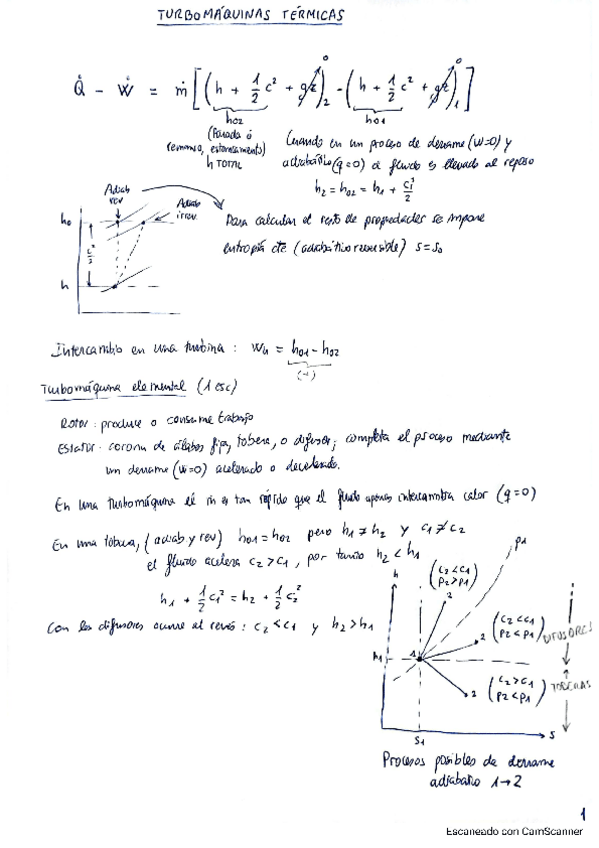 TURBOMÁQUINAS TÉRMICAS
Q̇ - Ẇ = ṁ[(h + 1/2 c² + gz)₂ - (h + 1/2 c² + gz)₁]
0 0
h02 h01
(Parada ó
remanso, estancamiento)
h TOTAL
Cuando en un proceso de derrame (W=0) y
adiabático (q=0) el fluido es llevado al reposo
h2 = h02 = h1 + c1²/2
Adiab
rev
Adiab
irrev
h0
c²/2
h
Para calcular el resto de propiedades se impone
entropía cte (adiabático reversible) s=s0
Intercambio en una turbina : Wu = h01 - h02
(-1)
Turbomáquina elemental (1 esc)
Rotor : produce o consume trabajo
Estator : corona de álabes fijos, tobera, o difusor; completa el proceso mediante
un derrame (W=0) acelerado o decelerado.
En una turbomáquina el ṁ es tan rápido que el fluido apenas intercambia calor (q=0)
En una tobera, (adiab y rev) h01 = h02 pero h1 ≠ h2 y c1 ≠ c2
el fluido acelera c2 > c1, por tanto h2 < h1
h1 + 1/2 c1² = h2 + 1/2 c2²
Con los difusores ocurre al revés : c2 < c1 y h2 > h1
h
P1
(c2<c1
P2>P1)
2
(c2<c1
P2<P1)
2
DIFUSORES
h1
1
(c2>c1
P2<P1)
2
TOBERAS
S1
S
Procesos posibles de derrame
adiabático 1→2
1
Escaneado con CamScanner